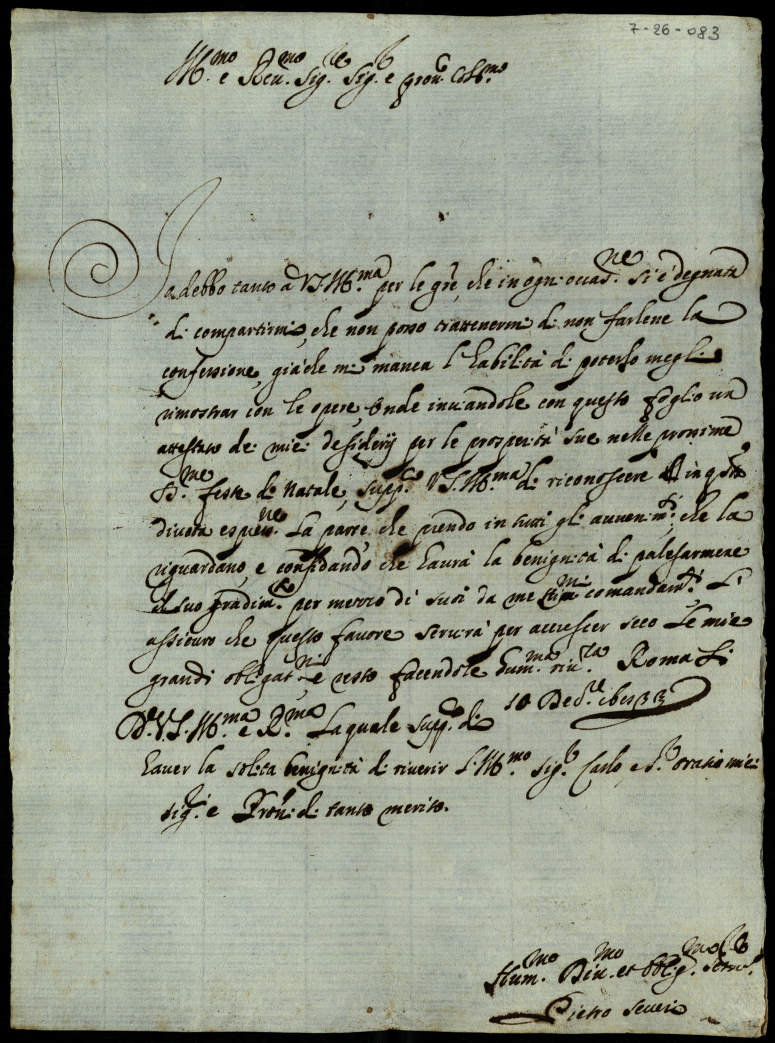 7-26-083
Ill.mo e Reu.mo Sig.re Sig.r e Pron Col.mo
Io debbo tanto à V.S. Ill.ma per le gr̃e, che in ogni occas.ne si è degnata
di compartirmi, che non posso trattenermi di non farlene la
confessione, già che mi manca l'habilità di poterlo meglio
rimostrar con le opere, Onde inuiandole con questo foglio un
attestato de miei desiderij per le prosperità sue nelle prossime
S.me feste di Natale, supp.co V.S. Ill.ma di riconoscere in q.sta
diuota espres.ne La parte, che prendo in tutti gli auuenim.ti, che la
riguardano, e confidando che haurà la benignità di palesarmene
il suo gradim.to per mezzo di suoi da me comandam.ti Li
assicuro che questo fauore seruirà per accrescer seco Le mie
grandi obligat.ni e resto facendole hum.ma riu.za Roma Li
10 Dec.re
D. V.S. Ill.ma e R.ma La quale supp.co di
hauer la solita benignità di riuerir l'Ill.mo Sig.r Carlo e S.r Oratio miei
Sig.ri e Pron.i di tanto merito.
Hum.mo Diu.mo et Obblig.mo Seru.r
Pietro Seueri